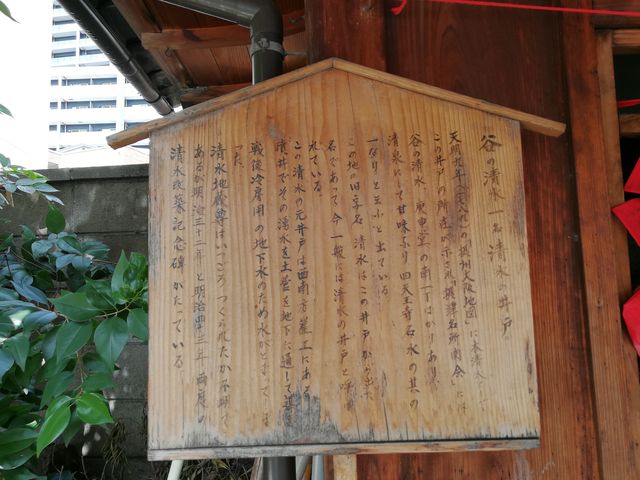 谷の清水 一名 清水の井戸
天明九年(一七八九)の摂州大阪地図に本清水
この井戸の所在が示され「摂津名所図会」には
谷の清水 庚申堂の南一丁ばかりあり、
清泉にして甘味なり 四天王寺名水の其の
一なりと云ふと出ている
この地の旧字名 清水はこの井戸から出た
名であって今一般には清水の井戸と呼
れている。
この清水の元井戸は西南方崖上にある
井でその湧水を土管を地下に通して
戦後冷房用の地下水のため水がとまってしま
った。
清水地蔵尊はいつごろつくられたか不明で
あるが明治三十二年と明治四十三年 両度の
清水改築記念碑がたっている